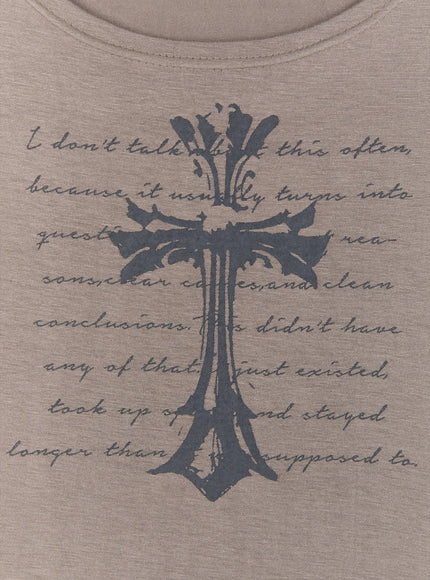 I don't talk about this often,
because it usually turns into
questi rea-
sons, clear causes, and clean
conclusions. This didn't have
any of that. It just existed,
took up space and stayed
longer than it supposed to.